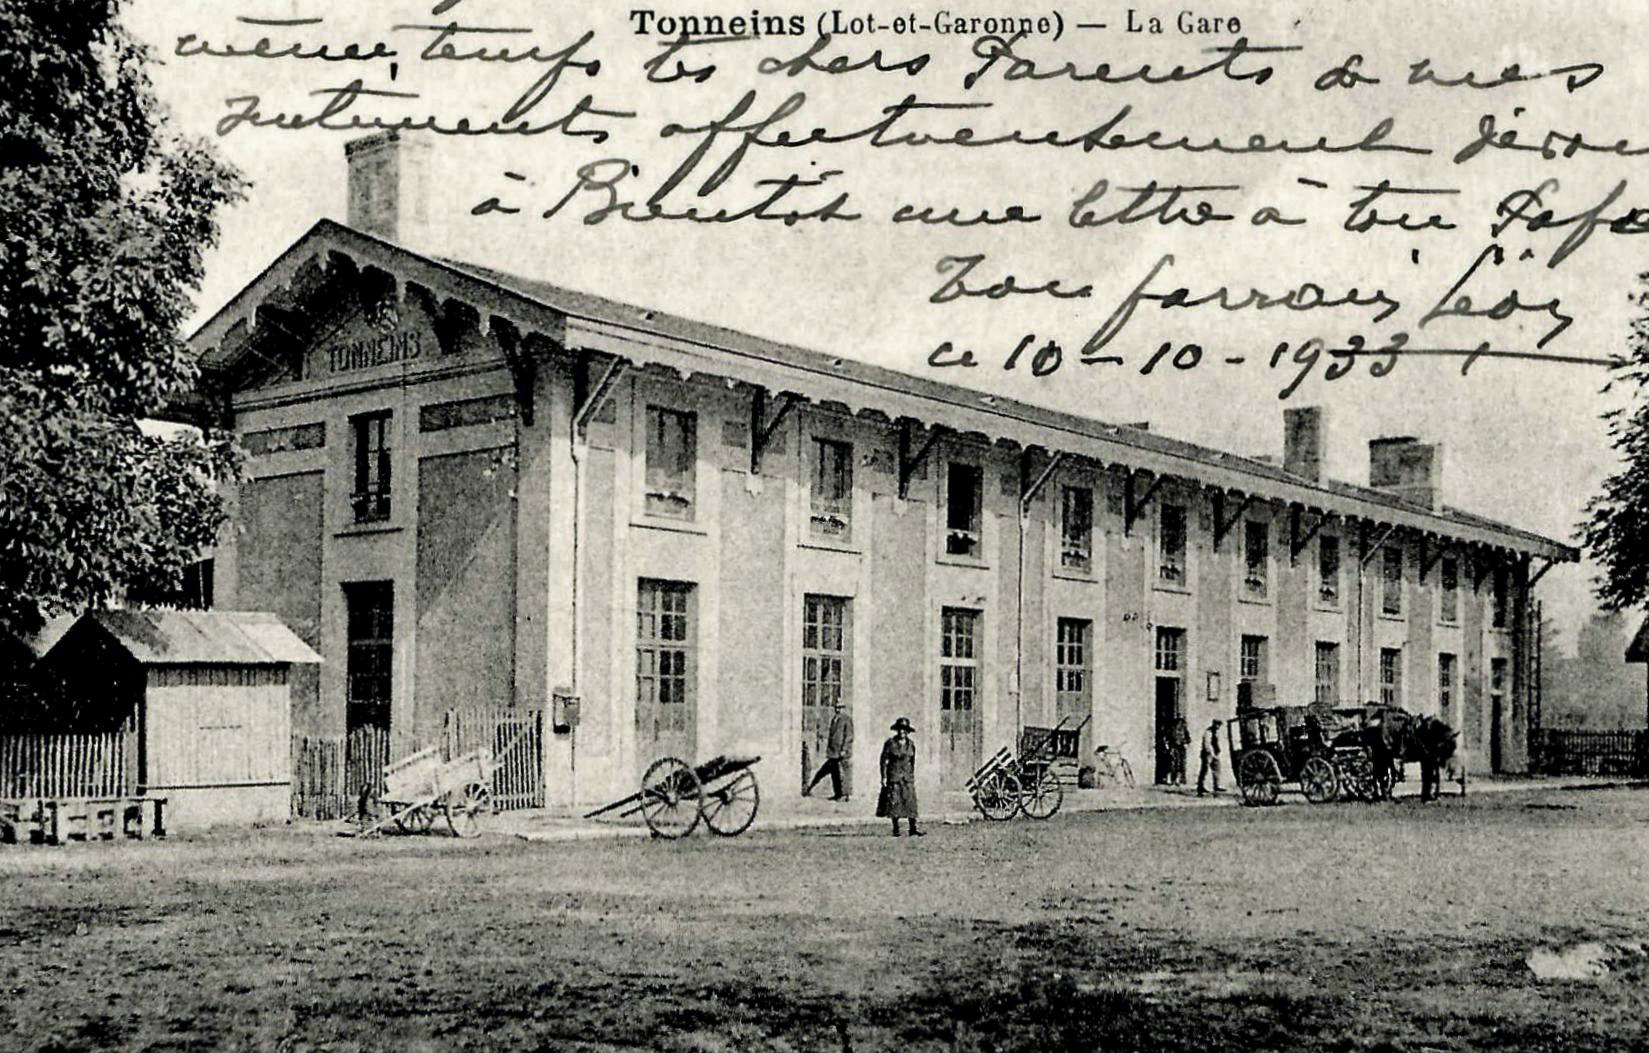 Tonneins (Lot-et-Garonne) — La Gare
même temps tes chers Parents de mes
sentiments affectueusement
à Bientôt une lettre à ton Papa
Ton parrain Léon
ce 10 - 10 - 1933
TONNEINS